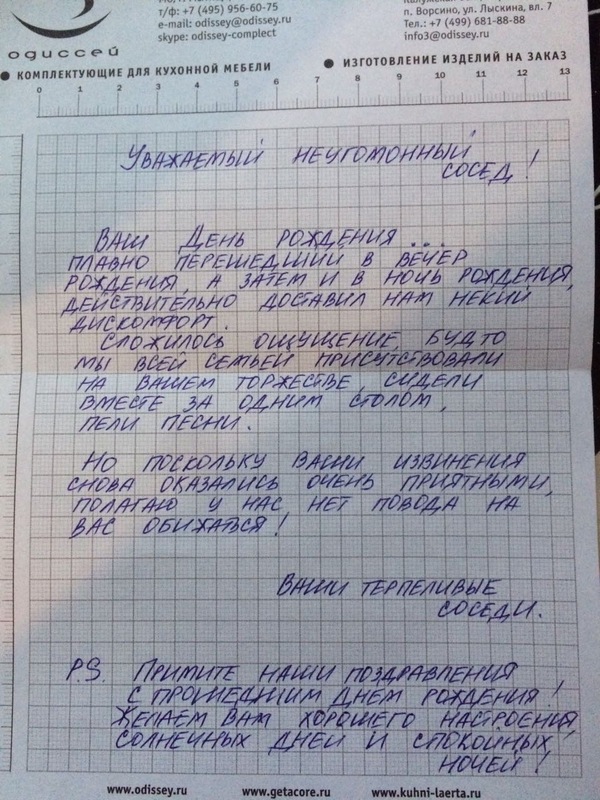 т/ф: +7 (495) 956-60-75
e-mail: odissey@odissey.ru
skype: odissey-complect
п. Ворсино, ул. Лыскина, вл. 7
Тел.: +7 (499) 681-88-88
info3@odissey.ru
одиссей
● КОМПЛЕКТУЮЩИЕ ДЛЯ КУХОННОЙ МЕБЕЛИ
● ИЗГОТОВЛЕНИЕ ИЗДЕЛИЙ НА ЗАКАЗ
0 1 2 3 4 5 6 7 8 9 10 11 12 13
Уважаемый неугомонный
сосед!
Ваш День рождения...
плавно перешедший в вечер
рождения, а затем и в ночь рождения,
действительно доставил нам некий
дискомфорт.
Сложилось ощущение, будто
мы всей семьёй присутствовали
на вашем торжестве, сидели
вместе за одним столом,
пели песни.
Но поскольку ваши извинения
снова оказались очень приятными,
полагаю у нас нет повода на
вас обижаться!
Ваши терпеливые
соседи.
P.S. Примите наши поздравления
с прошедшим днем рождения!
Желаем вам хорошего настроения,
солнечных дней и спокойных
ночей!
www.odissey.ru www.getacore.ru www.kuhni-laerta.ru